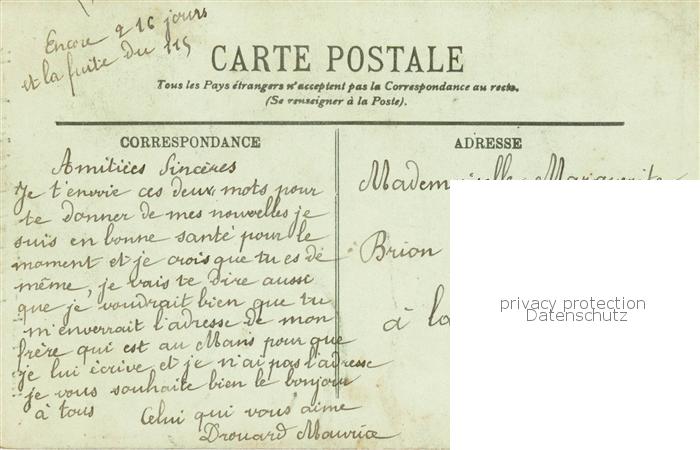 Encore 216 jours
et la fuite du 115
CARTE POSTALE
Tous les Pays étrangers n'acceptent pas la Correspondance au recto.
(Se renseigner à la Poste).
CORRESPONDANCE
Amitiées Sincères
Je t'envoie ces deux mots pour
te donner de mes nouvelles je
suis en bonne santé pour le
moment et je crois que tu es de
même, je vais te dire aussi
que je voudrait bien que tu
m'enverrait l'adresse de mon
frère qui est au Mans pour que
je lui écrive et je n'ai pas l'adresse
je vous souhaite bien le bonjour
à tous
Celui qui vous aime
Drouard Maurice
ADRESSE
Mademoiselle Marguerite
Brion
à la
privacy protection
Datenschutz